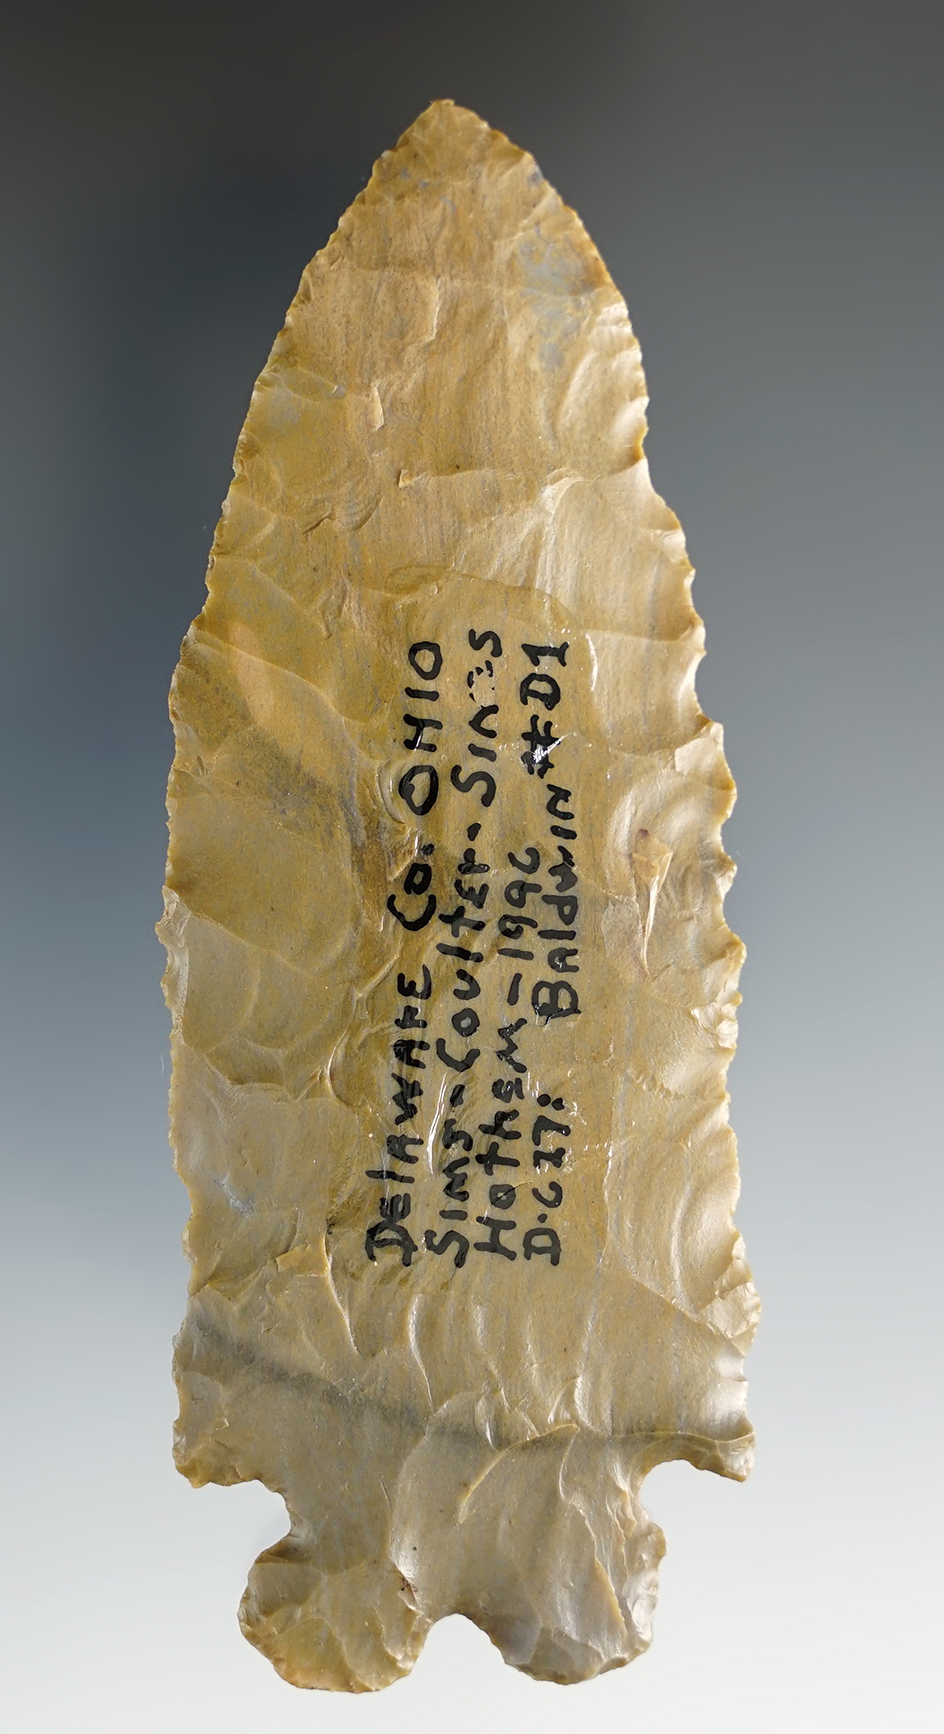 DElAWArE Co. OHIO
SIMS-CoulTEr-SIMS
HotHEM-1996
D.C 27: BAldwIN #D1